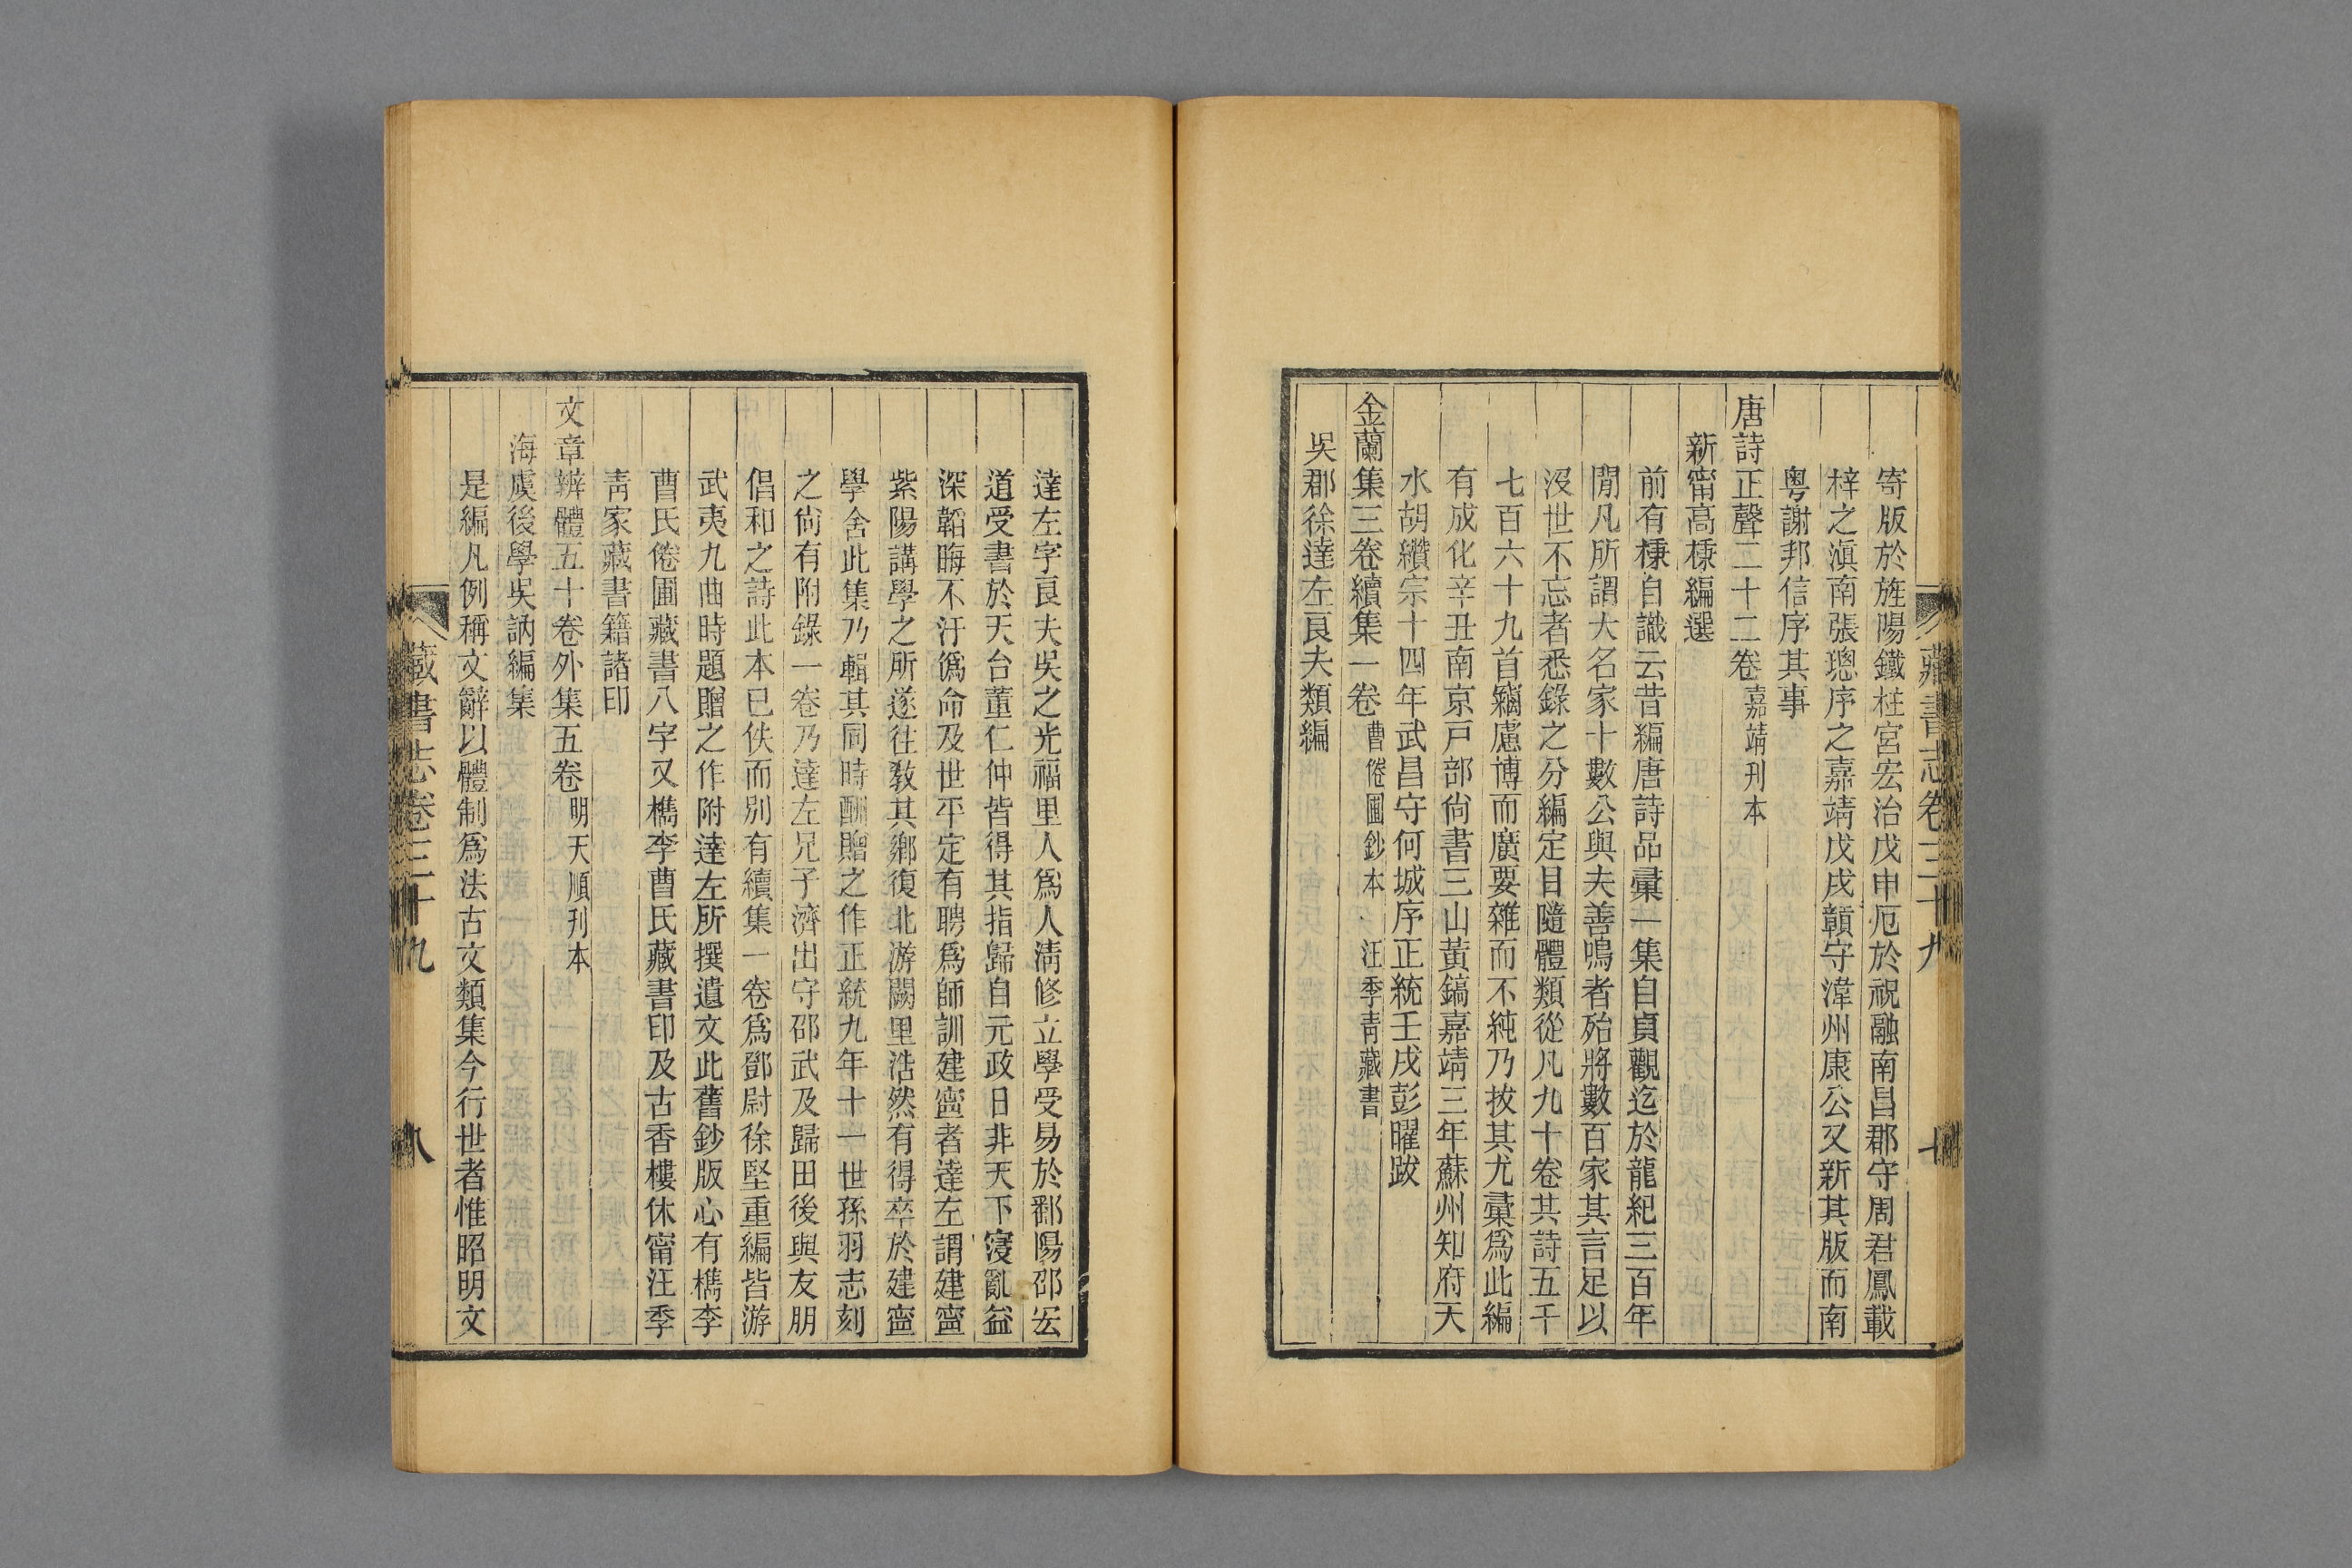 藏書志卷三十九
七
寄版於旌陽鐵柱宮宏治戊申厄於祝融南昌郡守周君鳳載
梓之滇南張璁序之嘉靖戊戌贛守濰州康公又新其版而南
粵謝邦信序其事
唐詩正聲二十二卷嘉靖刊本
新甯高棅編選
前有棅自識云昔編唐詩品彙一集自貞觀迄於龍紀三百年
閒凡所謂大名家十數公與夫善鳴者殆將數百家其言足以
沒世不忘者悉錄之分編定目隨體類從凡九十卷共詩五千
七百六十九首竊慮博而廣要雜而不純乃拔其尤彙爲此編
有成化辛丑南京戸部尙書三山黃鎬嘉靖三年蘇州知府天
水胡纘宗十四年武昌守何城序正統壬戌彭曜跋
金蘭集三卷續集一卷曹倦圃鈔本 汪季靑藏書
吳郡徐達左良夫類編
達左字良夫吳之光福里人爲人淸修立學受易於鄱陽邵宏
道受書於天台董仁仲皆得其指歸自元政日非天下寖亂益
深韜晦不汙僞命及世平定有聘爲師訓建寧者達左謂建寧
紫陽講學之所遂往敎其鄉復北游闕里浩然有得卒於建寧
學舍此集乃輯其同時酬贈之作正統九年十一世孫羽志刻
之尙有附錄一卷乃達左兄子濟出守邵武及歸田後與友朋
倡和之詩此本已佚而别有續集一卷爲鄧尉徐堅重編皆游
武夷九曲時題贈之作附達左所撰遺文此舊鈔版心有檇李
曹氏倦圃藏書八字又檇李曹氏藏書印及古香樓休甯汪季
靑家藏書籍諸印
文章辨體五十卷外集五卷明天順刊本
海虞後學吳訥編集
是編凡例稱文辭以體制爲法古文類集今行世者惟昭明文
藏書志卷三十九
八